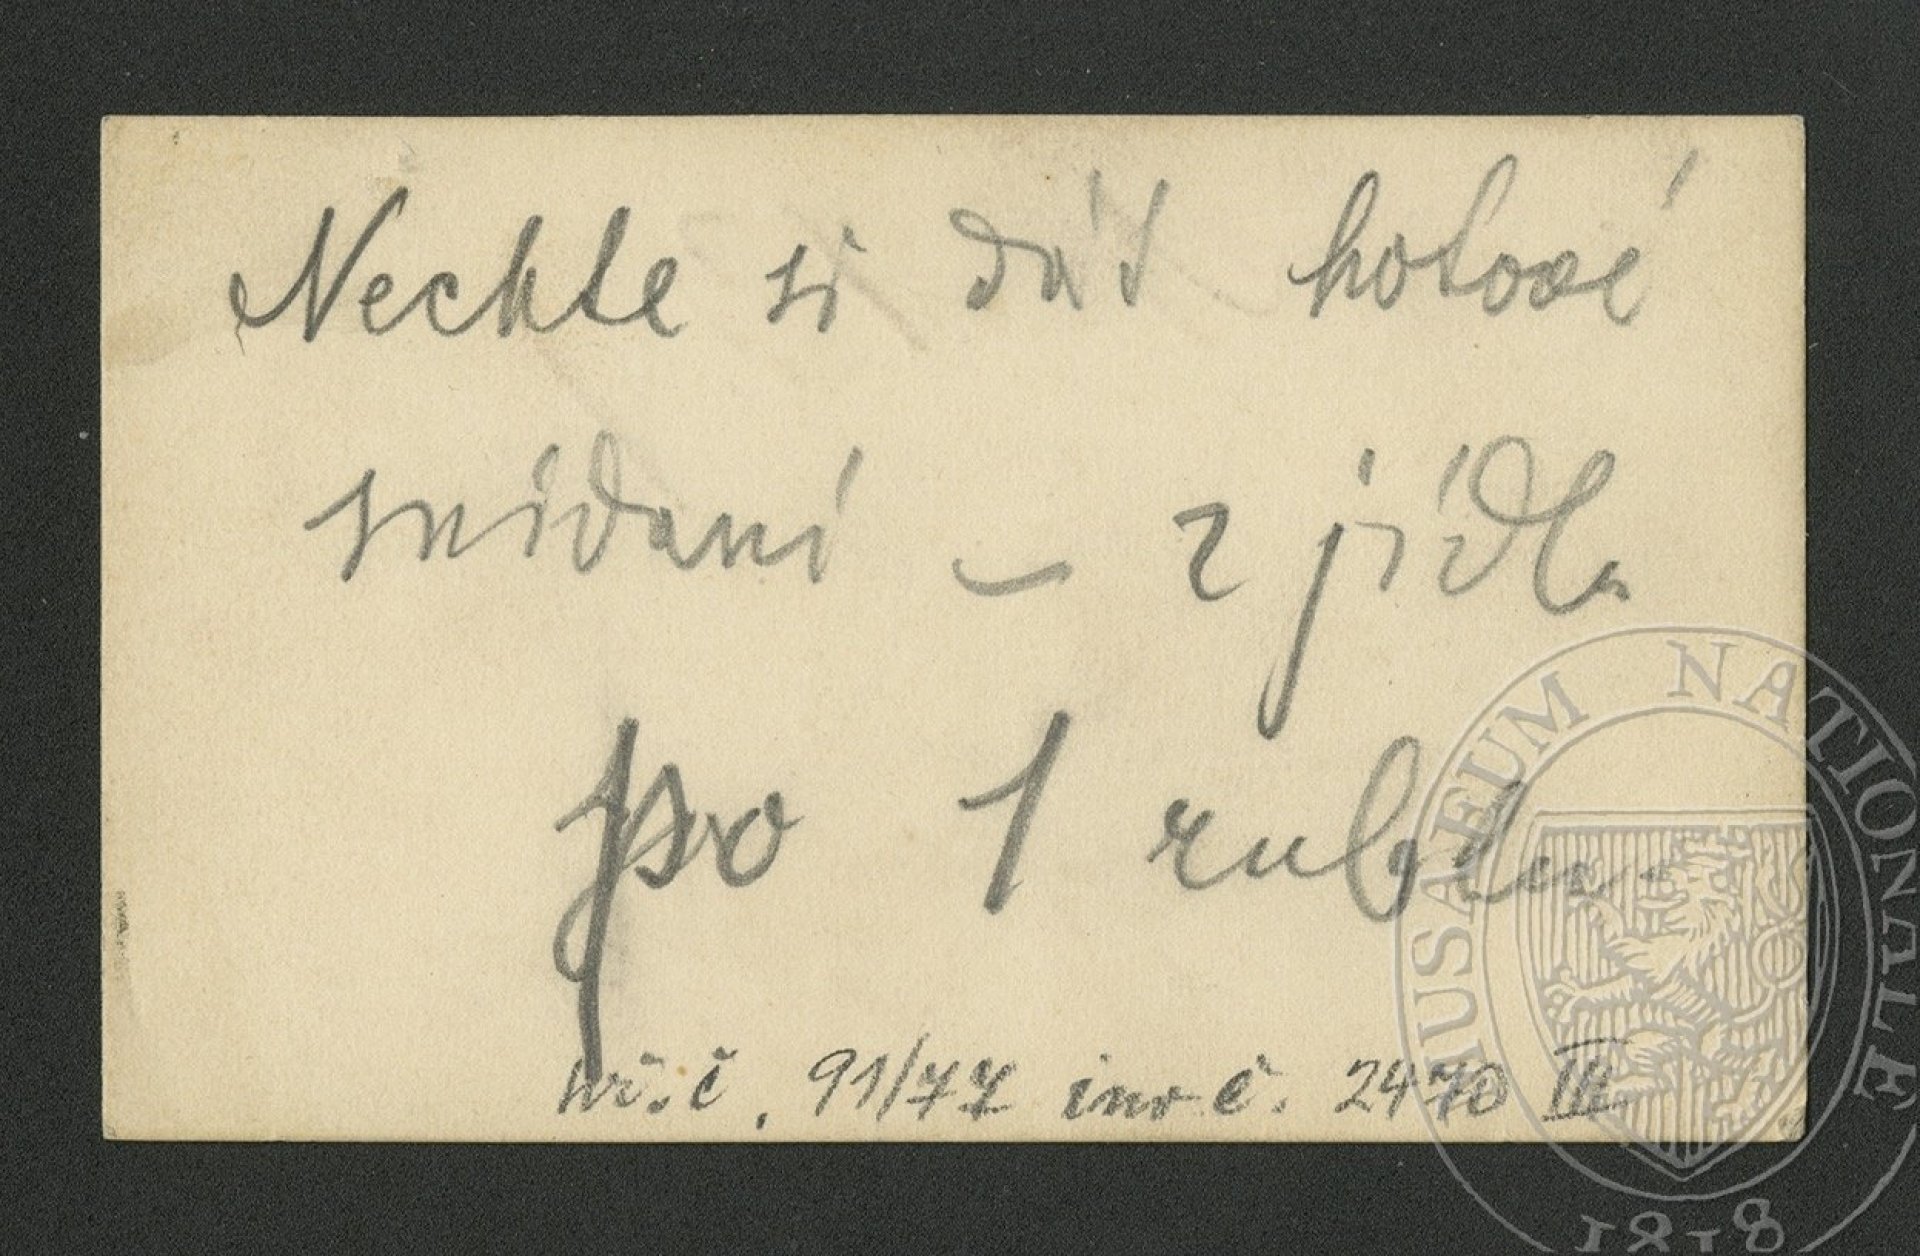 Nechte si dát hotové
snídaní – 2 jídla
po 1 rublu
př.č. 91/77 inv č. 2470 III
MUSAEUM NATIONALE
1818